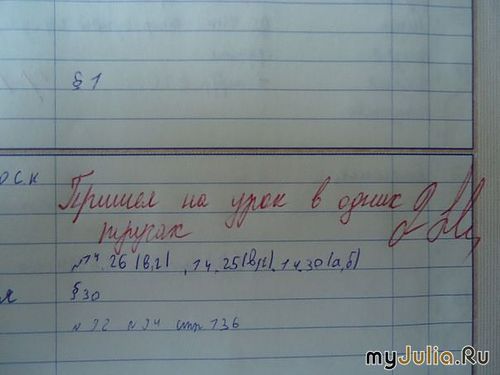 § 1
Пришел на урок в одних
трусах
2
№14.26 (в,г), 14.25 (в,г), 14.30 (а,б)
§ 30
№ 92 № 94 стр 136
myJulia.Ru